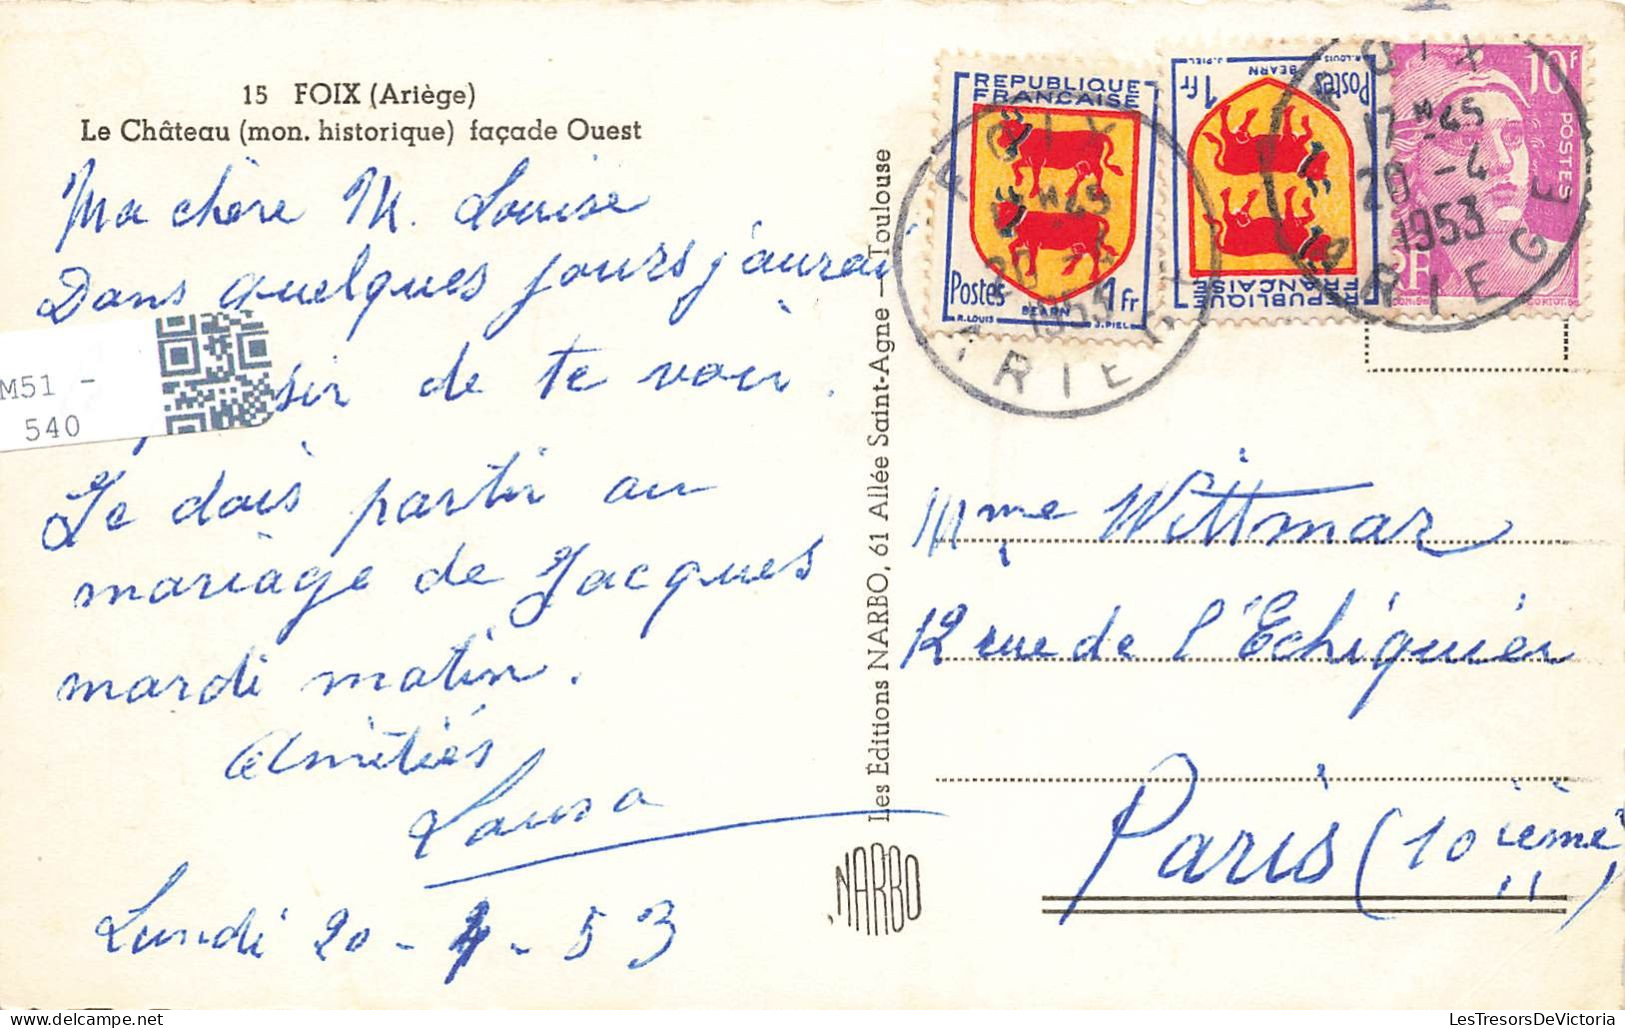 15 FOIX (Ariège)
Le Château (mon. historique) façade Ouest
Ma chère M. Louise
Dans quelques jours j'aurai
sir de te voir.
Je dois partir au
mariage de Jacques
mardi matin.
Amitiés
Lundi 20-4-53
M51 -
540
Les Éditions NARBO, 61 Allée Saint-Agne — Toulouse
NARBO
REPUBLIQUE
FRANÇAISE
Postes 1fr
R. LOUIS BEARN J. PIEL
1fr Postes
R. LOUIS BEARN J. PIEL
REPUBLIQUE
FRANÇAISE
10F
POSTES
RF
FOIX
17H45
20 -4
1953
ARIEGE
FOIX
17H45
20 -4
1953
ARIEGE
Mme Wittmar
12 rue de l'Echiquier
Paris (10ième)
LesTresorsDeVictoria